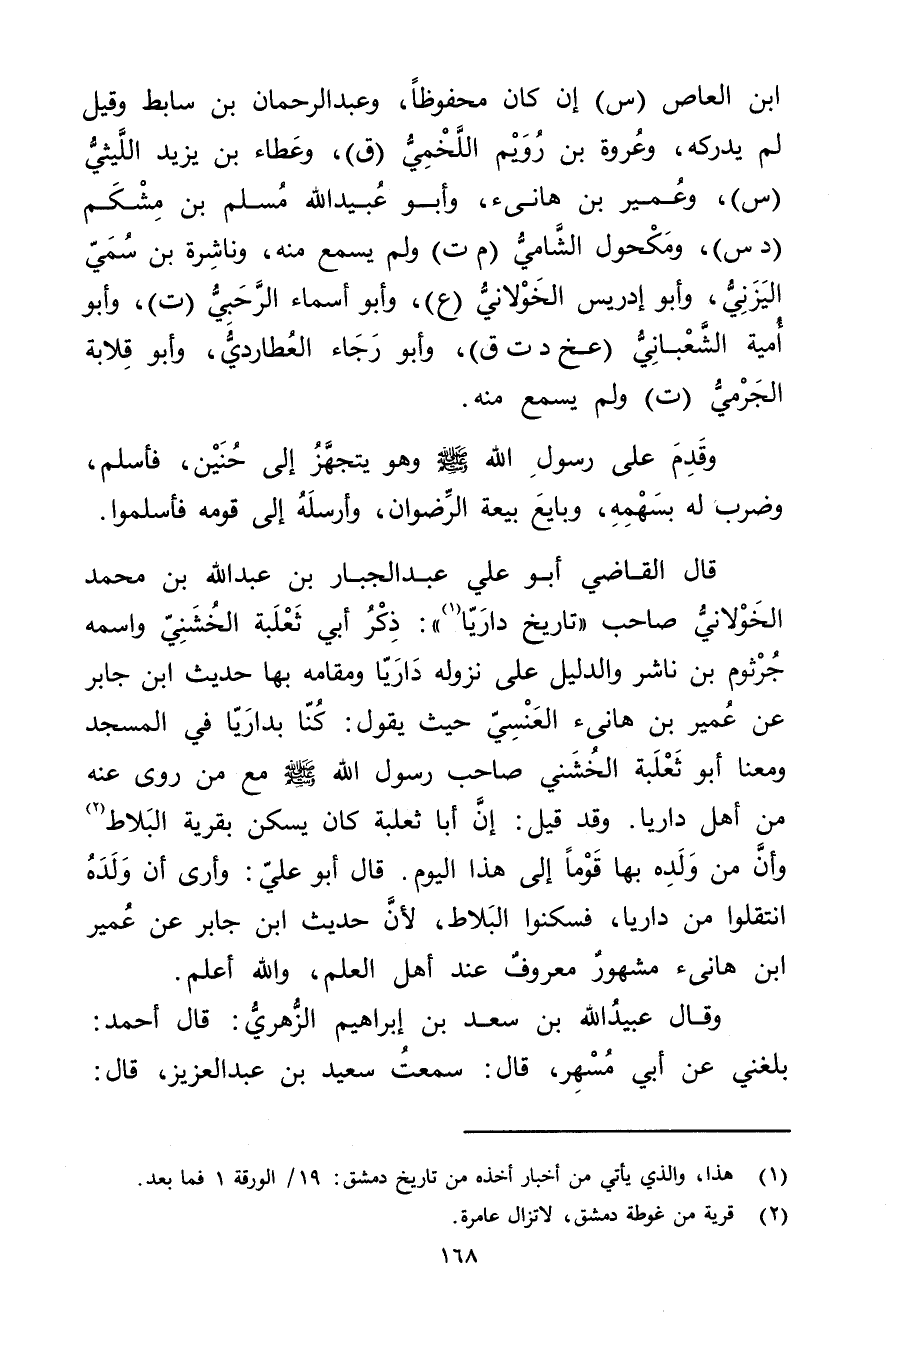 ابن العاص (س) إن كان محفوظاً، وعبدالرحمان بن سابط وقيل
لم يدركه، وعُروة بن رُوَيْم اللَّخْمِيُّ (ق)، وعَطاء بن يزيد اللَّيثيُّ
(س)، وعُمير بن هانىء، وأبو عُبيدالله مُسلم بن مِشْكَم
(د س)، ومَكْحول الشَّاميُّ (م ت) ولم يسمع منه، وناشِرة بن سُمَيّ
اليَزَنِيُّ، وأبو إدريس الخَوْلانيُّ (ع)، وأبو أسماء الرَّحَبِيُّ (ت)، وأبو
أُمية الشَّعْبانِيُّ (عخ د ت ق)، وأبو رَجَاء العُطارديُّ، وأبو قِلابة
الجَرْميُّ (ت) ولم يسمع منه.
وقَدِمَ على رسولِ الله ﷺ وهو يتجهَّزُ إلى حُنَيْن، فأسلم،
وضرب له بسَهْمِهِ، وبايعَ بيعة الرِّضوان، وأرسلَهُ إلى قومه فأسلموا.
قال القاضي أبو علي عبدالجبار بن عبدالله بن محمد
الخَوْلانيُّ صاحب «تاريخ دارَيّا(١)»: ذِكْرُ أبي ثَعْلَبة الخُشَنِيّ واسمه
جُرْثوم بن ناشر والدليل على نزوله دَارَيّا ومقامه بها حديث ابن جابر
عن عُمير بن هانىء العَنْسِيّ حيث يقول: كُنّا بدارَيّا في المسجد
ومعنا أبو ثَعْلَبة الخُشَني صاحب رسول الله ﷺ مع من روى عنه
من أهل داريا. وقد قيل: إنَّ أبا ثعلبة كان يسكن بقرية البَلاط(٢)
وأنَّ من وَلَدِه بها قَوْماً إلى هذا اليوم. قال أبو عليّ: وأرى أن وَلَدَهُ
انتقلوا من داريا، فسكنوا البَلاط، لأنَّ حديث ابن جابر عن عُمير
ابن هانىء مشهورٌ معروفٌ عند أهل العلم، والله أعلم.
وقال عبيدُالله بن سعد بن إبراهيم الزُّهريُّ: قال أحمد:
بلغني عن أبي مُسْهِر، قال: سمعتُ سعيد بن عبدالعزيز، قال:
(١) هذا، والذي يأتي من أخبار أخذه من تاريخ دمشق: ١٩/ الورقة ١ فما بعد.
(٢) قرية من غوطة دمشق، لاتزال عامرة.
١٦٨